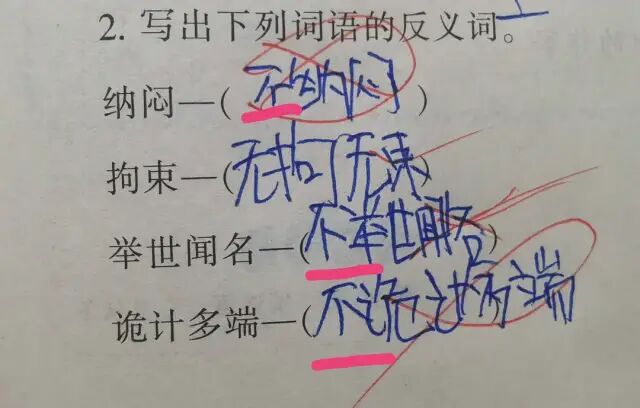 2. 写出下列词语的反义词。
纳闷—(不纳闷)
拘束—(无拘无束)
举世闻名—(不举世闻名)
诡计多端—(不诡计多端)